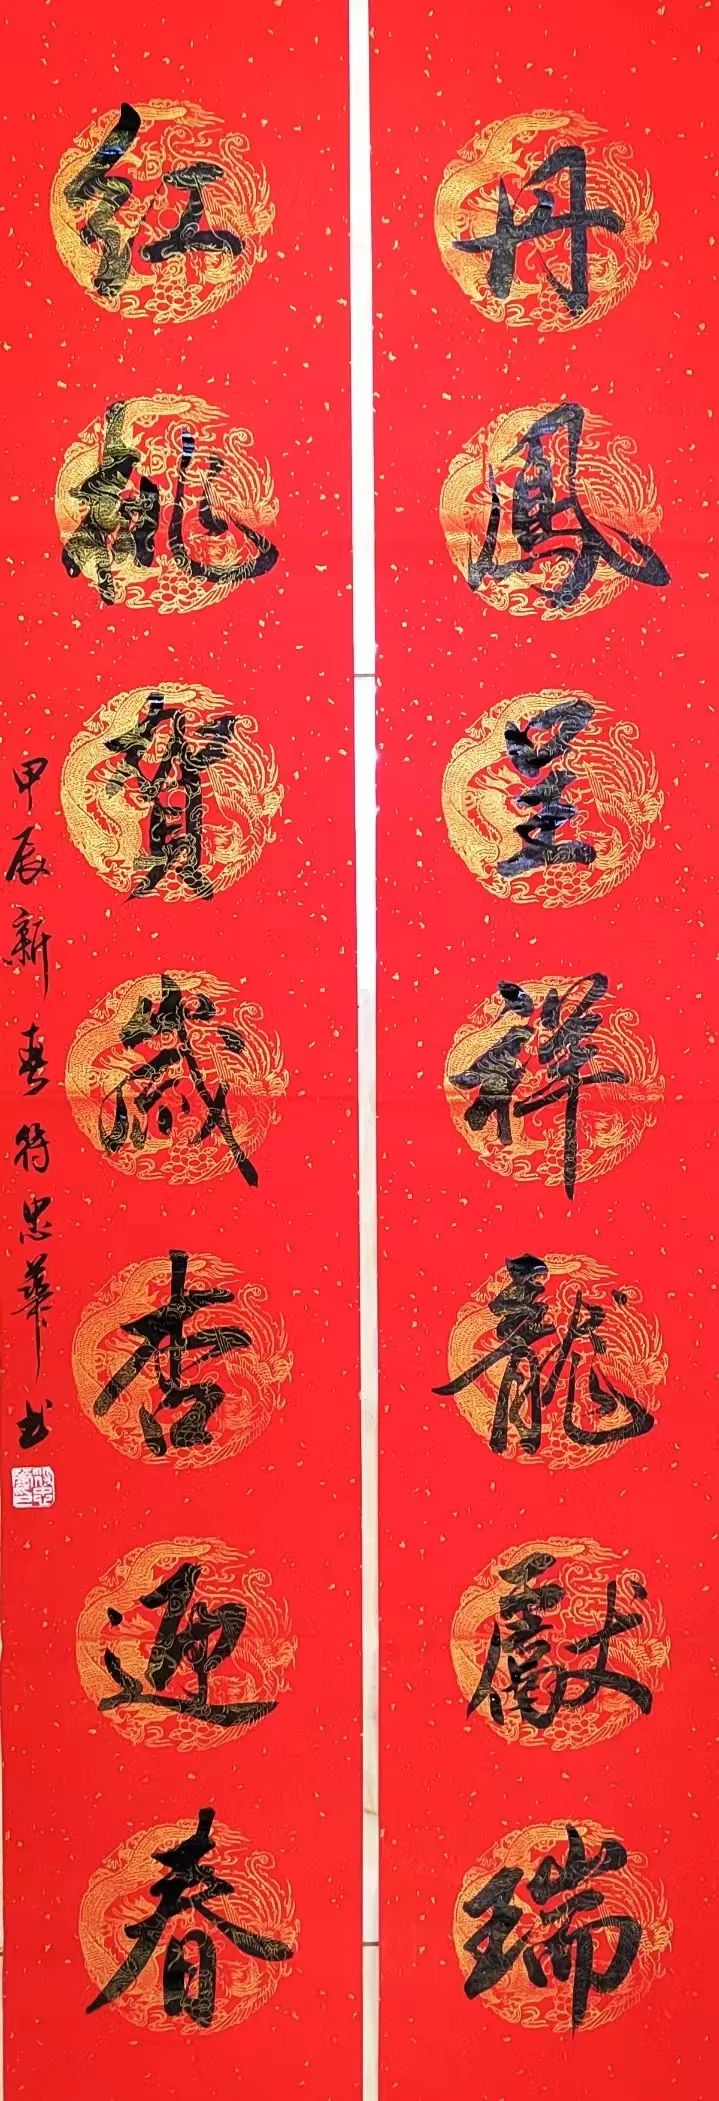 丹鳳呈祥龍獻瑞
紅桃賀歲杏迎春
甲辰新春符忠華书